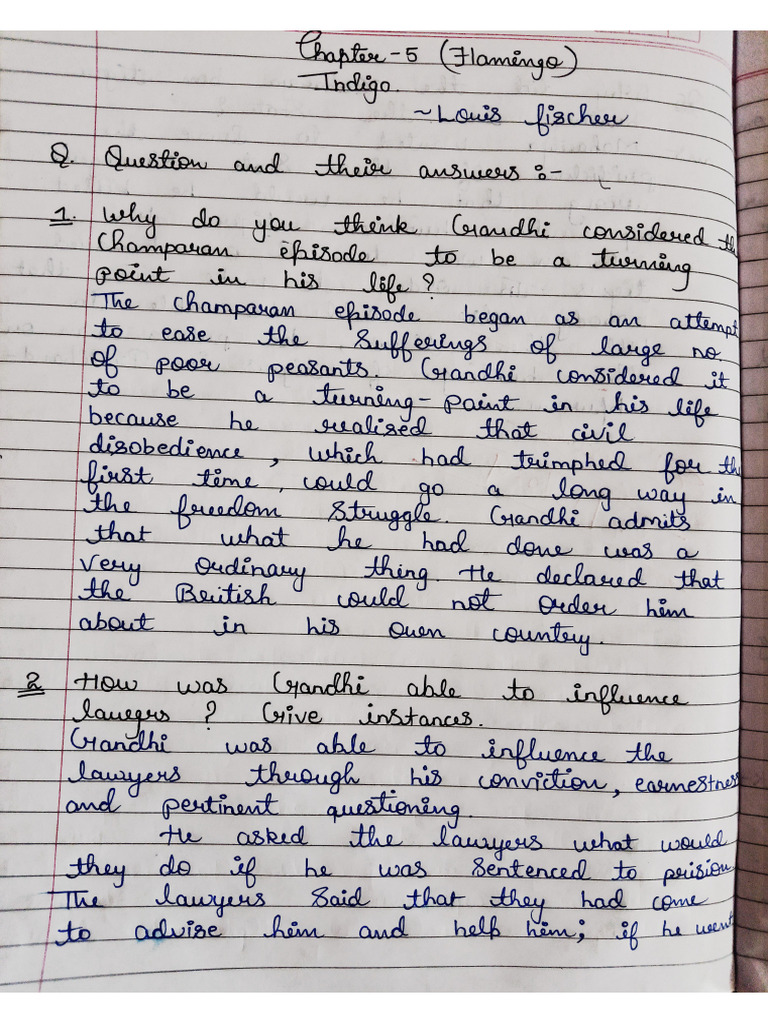 Chapter-5 (Flamingo)
Indigo.
~Louis fischer
Q. Question and their answers :-
1. Why do you think Gandhi considered the
Champaran episode to be a turning
point in his life?
The champaran episode began as an attempt
to ease the sufferings of large no
of poor peasants. Gandhi considered it
to be a turning-point in his life
because he realised that civil
disobedience, which had trimphed for the
first time, could go a long way in
the freedom struggle. Gandhi admits
that what he had done was a
very ordinary thing. He declared that
the British could not order him
about in his own country.
2 How was Gandhi able to influence
lawegrs? Give instances.
Gandhi was able to influence the
lawyers through his conviction, earnestness
and pertinent questioning.
He asked the lawyers what would
they do if he was sentenced to prision
The lawyers said that they had come
to advise him and help him; if he went